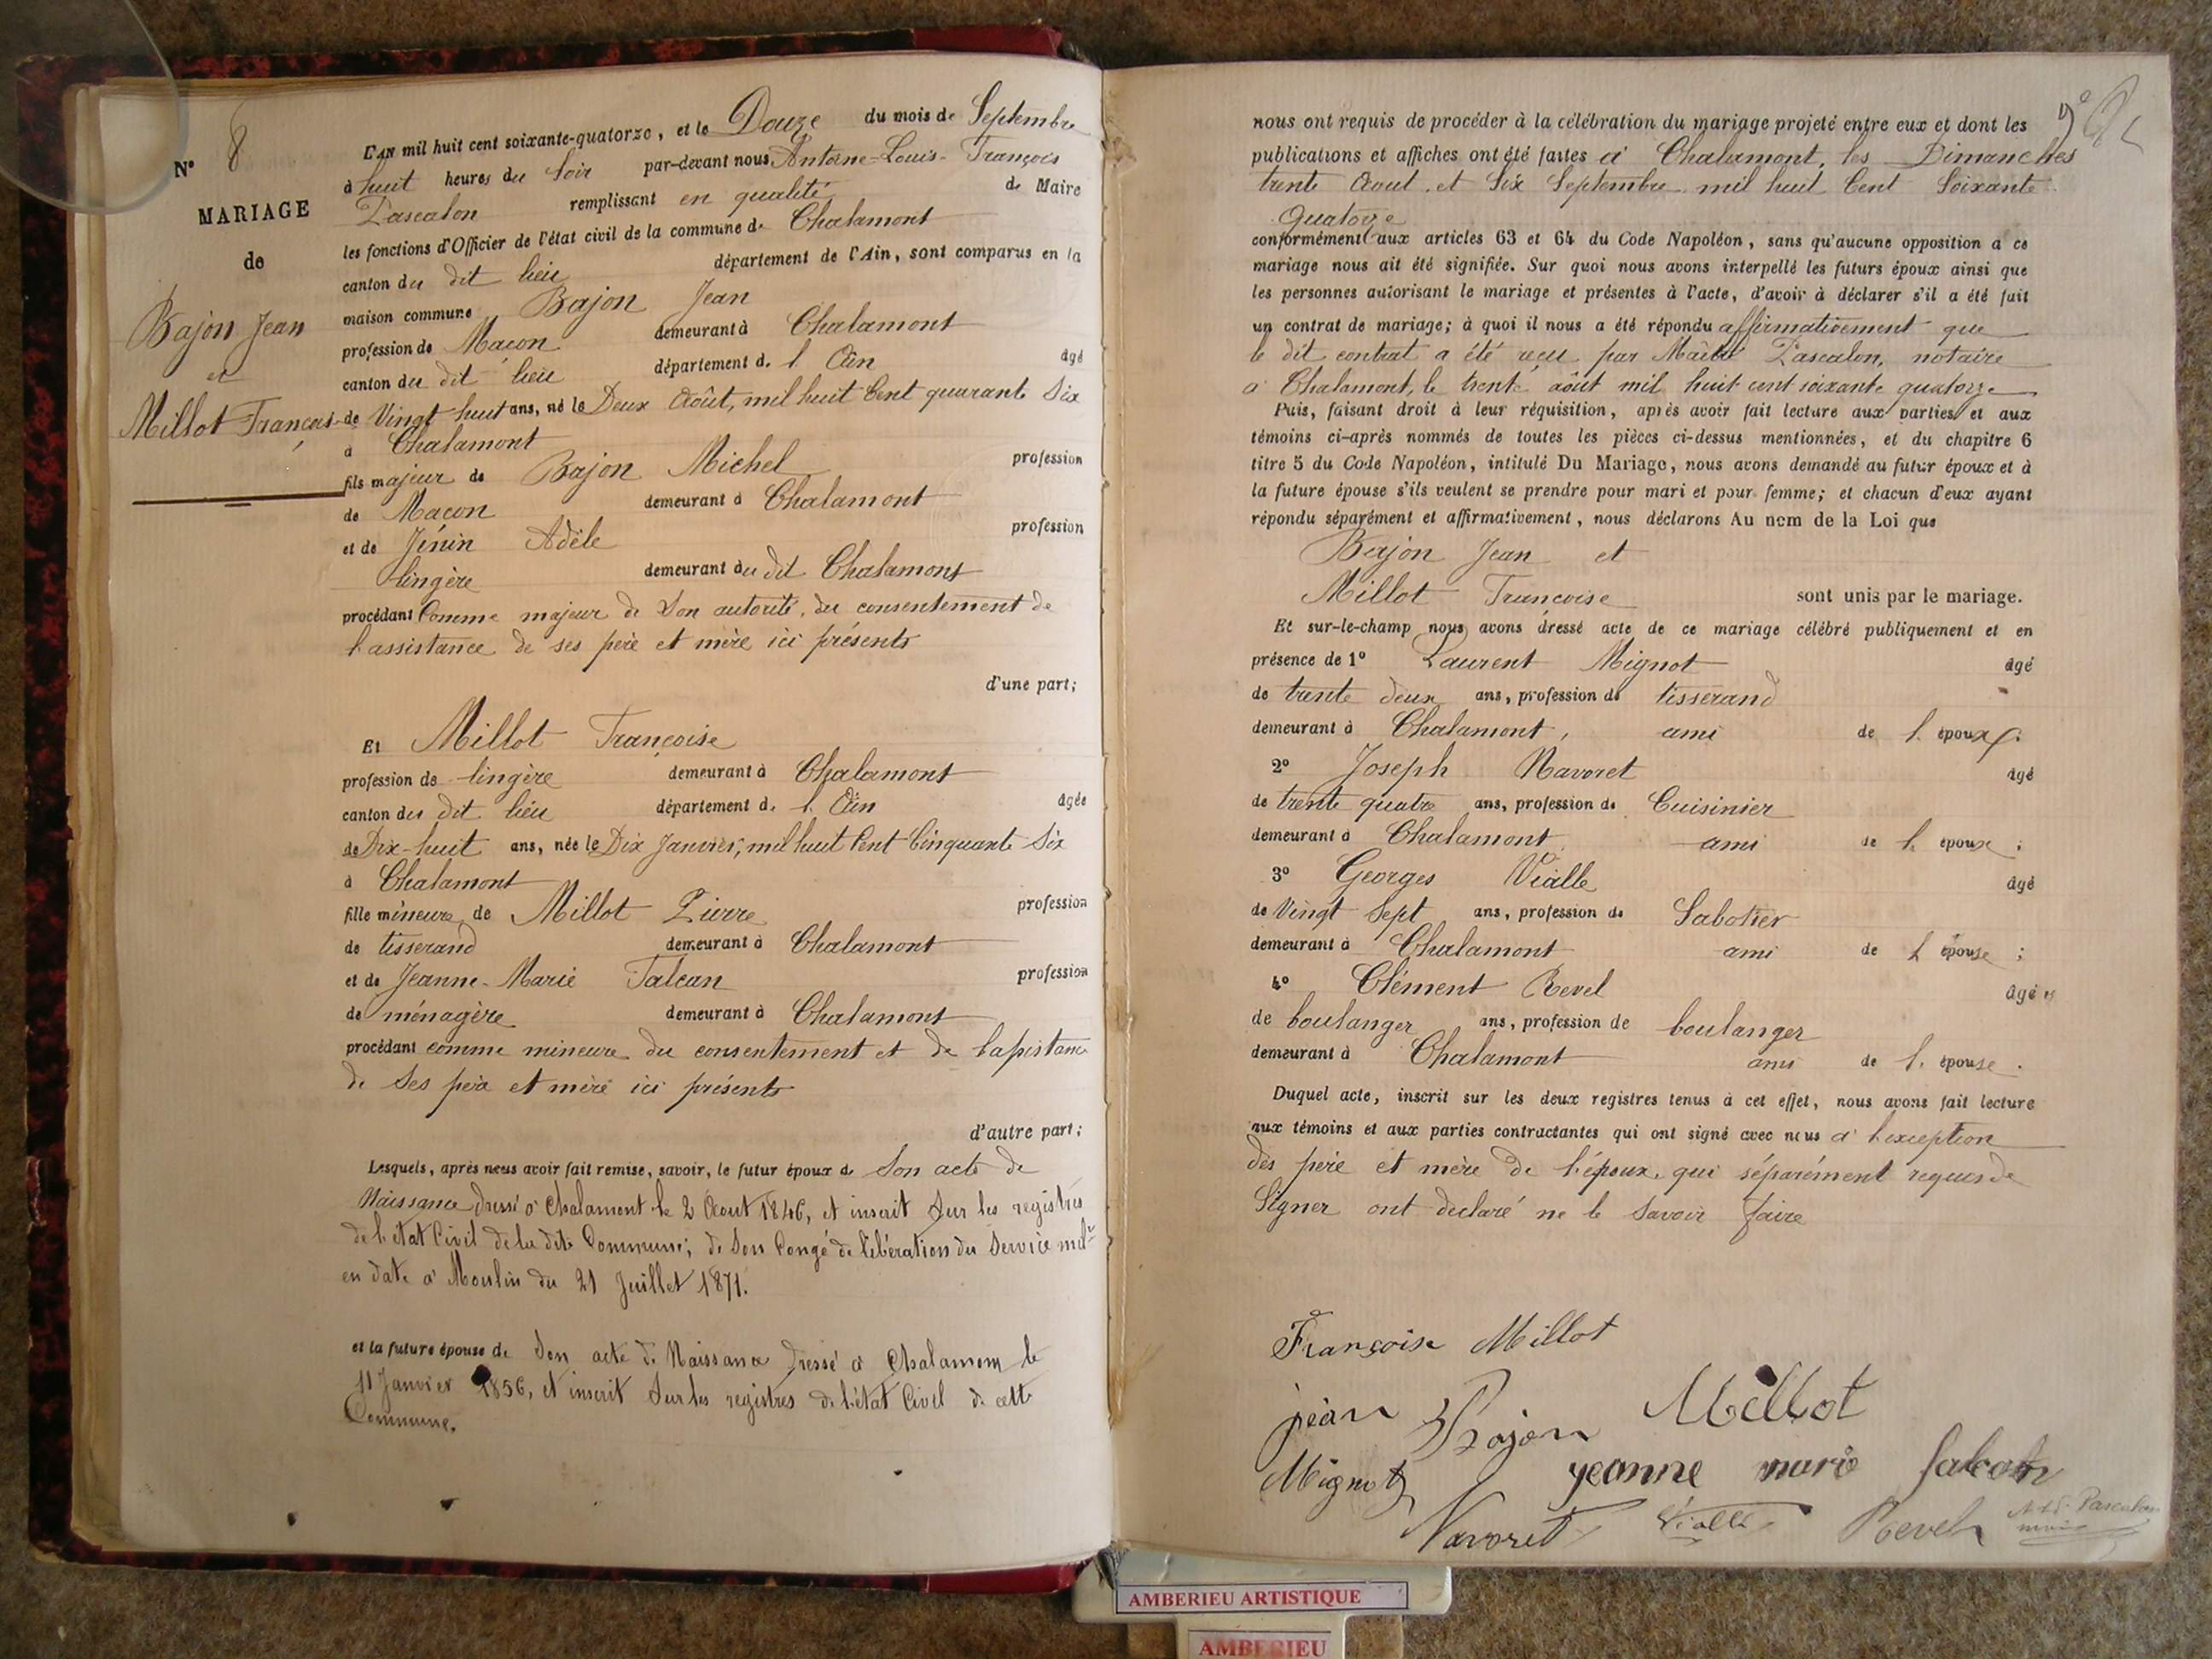 N° 8
MARIAGE
de
Bajon Jean
et
Millot Françoise
L'an mil huit cent soixante-quatorze, et le Douze du mois de Septembre
à huit heures du Soir par-devant nous Antoine-Louis-François
Pascalon remplissant en qualité de Maire
les fonctions d'Officier de l'état civil de la commune de Chalamont
canton du dit lieu département de l'Ain, sont comparus en la
maison commune Bajon Jean
profession de Maçon demeurant à Chalamont
canton du dit lieu département de l'Ain âgé
de Vingt huit ans, né le Deux Août, mil huit Cent quarante Six
à Chalamont
fils majeur de Bajon Michel profession
de Maçon demeurant à Chalamont
et de Jénin Adèle profession
lingère demeurant au dit Chalamont
procédant Comme majeur de Son autorité, du consentement de
l'assistance de ses père et mère ici présents
d'une part;
Et Millot Françoise
profession de lingère demeurant à Chalamont
canton du dit lieu département de l'Ain âgée
de Dix-huit ans, née le Dix Janvier, mil huit Cent Cinquante Six
à Chalamont
fille mineure de Millot Pierre profession
de tisserand demeurant à Chalamont
et de Jeanne-Marie Falcan profession
de ménagère demeurant à Chalamont
procédant comme mineure du consentement et de l'assistance
de Ses père et mère ici présents
d'autre part;
Lesquels, après nous avoir fait remise, savoir, le futur époux de Son acte de
Naissance dressé à Chalamont le 2 Aout 1846, et inscrit Sur les registres
de l'état Civil de la dite Commune; de Son Congé de libération du Service mil.re
en date à Moulin du 21 Juillet 1871.
et la future épouse de Son acte de Naissance dressé à Chalamon le
11 Janvier 1856, et inscrit Sur les registres de l'état Civil de cette
Commune.
nous ont requis de procéder à la célébration du mariage projeté entre eux et dont les
publications et affiches ont été faites à Chalamont, les Dimanches
trente Aout et Six Septembre mil huit Cent Soixante
Quatorze
conformément aux articles 63 et 64 du Code Napoléon, sans qu'aucune opposition a ce
mariage nous ait été signifiée. Sur quoi nous avons interpellé les futurs époux ainsi que
les personnes autorisant le mariage et présentes à l'acte, d'avoir à déclarer s'il a été fait
un contrat de mariage; à quoi il nous a été répondu affirmativement que
le dit contrat a été reçu par Maître Pascalon, notaire
à Chalamont, le trente août mil huit cent soixante quatorze
Puis, faisant droit à leur réquisition, après avoir fait lecture aux parties et aux
témoins ci-après nommés de toutes les pièces ci-dessus mentionnées, et du chapitre 6
titre 5 du Code Napoléon, intitulé Du Mariage, nous avons demandé au futur époux et à
la future épouse s'ils veulent se prendre pour mari et pour femme; et chacun d'eux ayant
répondu séparément et affirmativement, nous déclarons Au nom de la Loi que
Bajon Jean et
Millot Francoise sont unis par le mariage.
Et sur-le-champ nous avons dressé acte de ce mariage célébré publiquement et en
présence de 1° Laurent Mignot âgé
de trente deux ans, profession de tisserand
demeurant à Chalamont, ami de l'époux.
2° Joseph Navoret âgé
de trente quatre ans, profession de Cuisinier
demeurant à Chalamont ami de l'époux;
3° Georges Vialle âgé
de Vingt Sept ans, profession de Sabotier
demeurant à Chalamont ami de l'épouse;
4° Clément Revel âgé
de boulanger ans, profession de boulanger
demeurant à Chalamont ami de l'épouse.
Duquel acte, inscrit sur les deux registres tenus à cet effet, nous avons fait lecture
aux témoins et aux parties contractantes qui ont signé avec nous à l'exception
des père et mère de l'époux, qui séparément requis de
Signer ont déclaré ne le Savoir faire
Françoise Millot
jean Bajon Millot
Mignot jeanne marie falcon
Navoret Vialle Revel Pascalon
AMBERIEU ARTISTIQUE
AMBERIEU